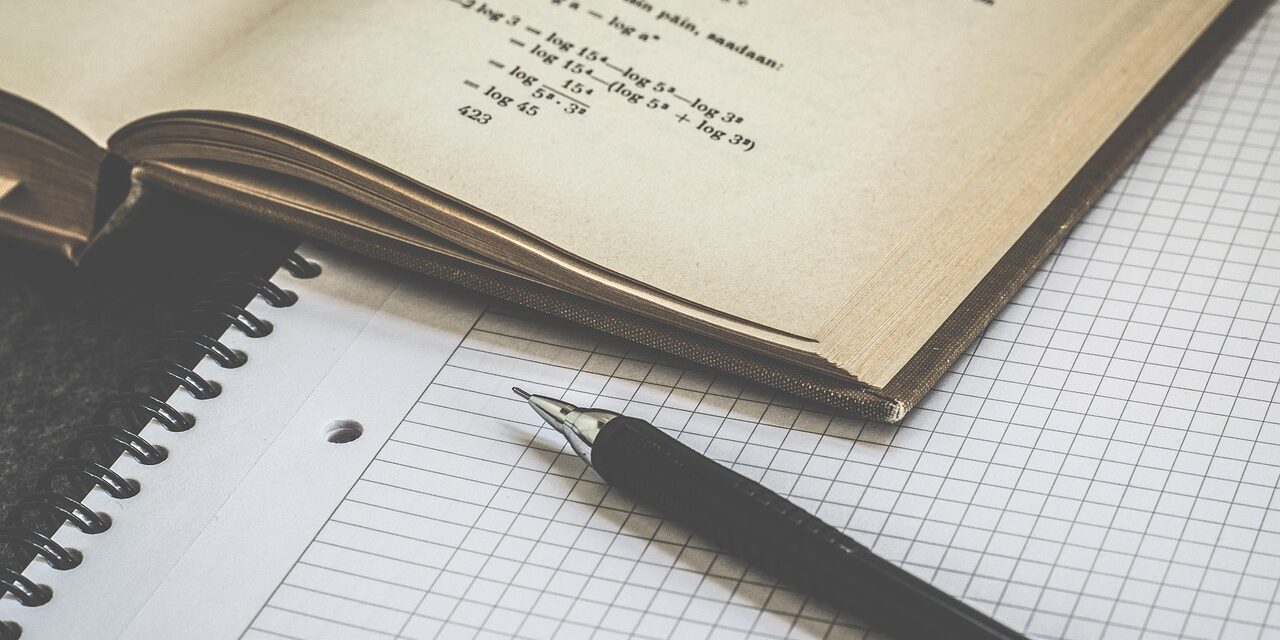 päin, saadaan:
log a
2 log 3 = log 15⁴—log 5³—log 3²
= log 15⁴—(log 5³ + log 3²)
= log 15⁴
5³ · 3²
= log 45
423